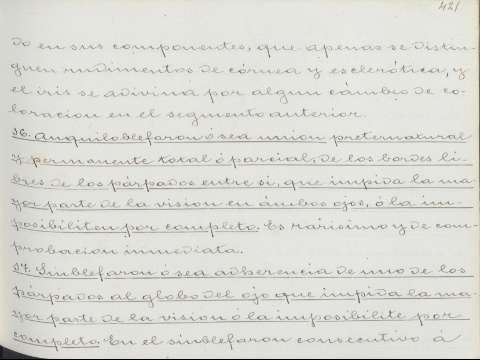 421
do en sus componentes, que apenas se distin-
guen rudimentos de córnea y esclerótica, y
el iris se adivina por algun cámbio de co-
loracion en el segmento anterior.
26. Anquiloblefaron ó sea union preternatural
y permanente total ó parcial, de los bordes li-
bres de los párpados entre sí, que impida la ma-
yor parte de la vision en ámbos ojos, ó la im-
posibiliten por completo. Es rarísimo y de com-
probacion inmediata.
27. Simblefaron ó sea adherencia de uno de los
párpados al globo del ojo que impida la ma-
yor parte de la vision ó la imposibilite por
completo. En el simblefaron consecutivo á